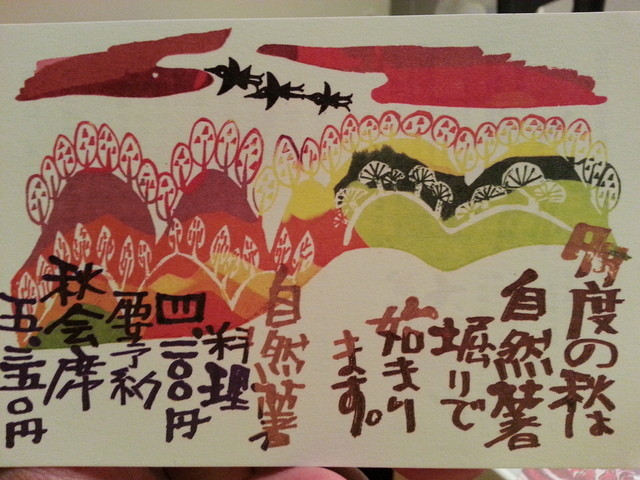 多度の秋は
自然薯
堀りで
始まり
ます。
自然薯
料理
四.二〇〇円
要予約
秋会席
五.二五〇円